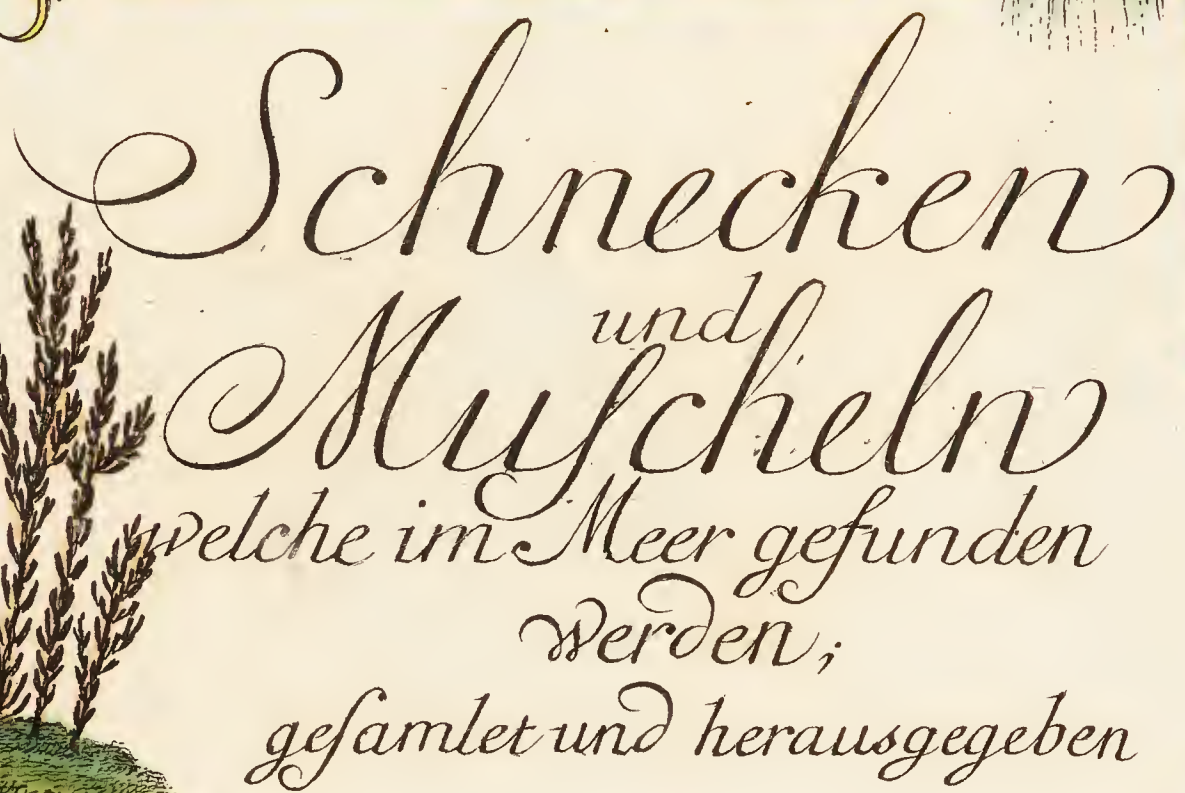 Schnecken
und
Muſcheln
welche im Meer gefunden
werden;
geſamlet und herausgegeben